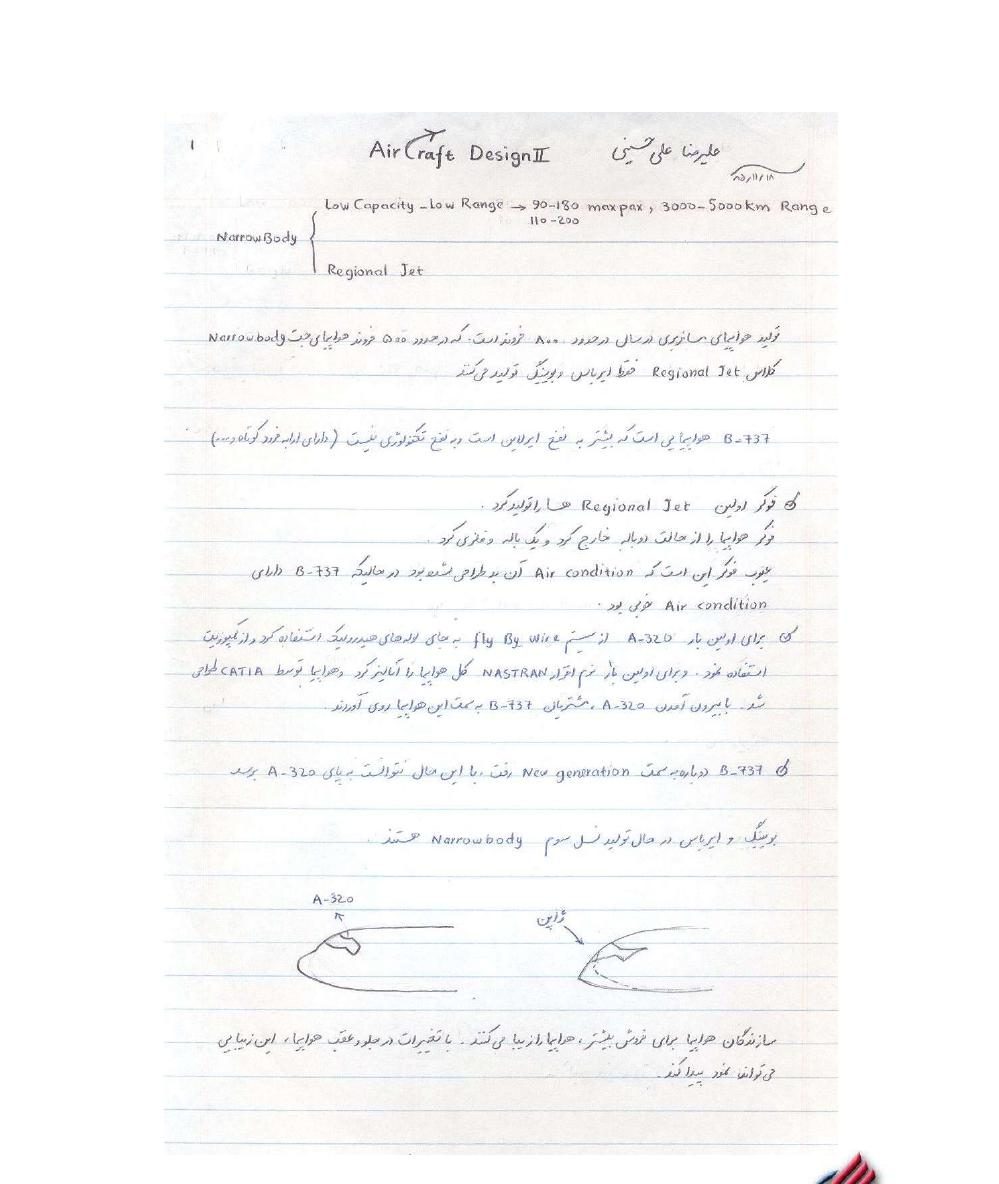 ۱
AirCraft Design II
علیرضا علی حسینی
۸۵/۱۱/۱۸
Low Capacity - Low Range → 90-180 max pax, 3000-5000 km Range
110-200
Narrow Body
Regional Jet
تولید هواپیمای مسافربری در سال در حدود ۸۰۰ فروند است. که در حدود ۵۰۰ فروند هواپیمای جت Narrowbody
کلاس Regional Jet فقط ایرباس و بوئینگ تولید می‌کنند
B-737 هواپیمایی است که بیشتر به نفع ایرلاین است و به نفع تکنولوژی نیست (دارای ارابه فرود کوتاه و ...)
فوکر اولین Regional Jet ها را تولید کرد.
فوکر هواپیما را از حالت دوباله خارج کرد و یک باله و فلزی کرد.
عیوب فوکر این است که Air condition آن بد طراحی شده بود در حالیکه B-737 دارای
Air condition خوبی بود.
برای اولین بار A-320 از سیستم Fly By Wire به جای لوله‌های هیدرولیک استفاده کرد و از کمپوزیت
استفاده نمود. و برای اولین بار نرم افزار NASTRAN کل هواپیما را آنالیز کرد و هواپیما توسط CATIA طراحی
شد. با بیرون آمدن A-320، مشتریان B-737 به سمت این هواپیما روی آوردند.
B-737 دوباره به سمت New generation رفت، با این حال نتوانست به پای A-320 برسد
بوئینگ و ایرباس در حال تولید نسل سوم Narrowbody هستند.
A-320
ژاپن
سازندگان هواپیما برای فروش بیشتر، هواپیما را زیبا می‌کنند. با تغییرات در جلو و عقب هواپیما، این زیبایی
می‌تواند نمود پیدا کند.